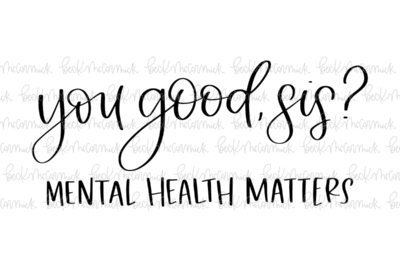 you good, sis?
MENTAL HEALTH MATTERS